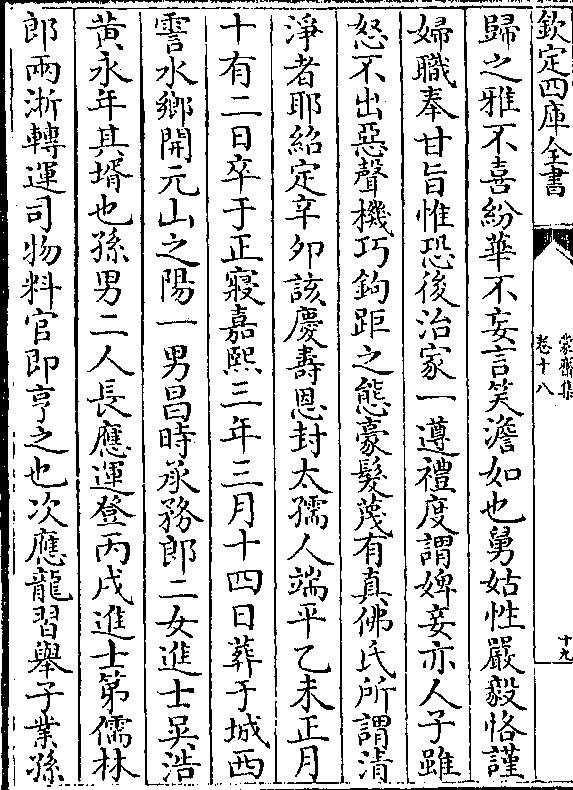 欽定四庫全書
蒙齋集
卷十八
十九
歸之雅不喜紛華不妄言笑澹如也舅姑性嚴毅恪謹
婦職奉甘旨惟恐後治家一遵禮度謂婢妾亦人子雖
怒不出惡聲機巧鉤距之態豪髮蔑有真佛氏所謂清
淨者耶紹定辛卯該慶壽恩封太孺人端平乙未正月
十有二日卒于正寢嘉熙三年三月十四日葬于城西
霅水鄉開元山之陽一男昌時承務郎二女進士吳浩
黃永年其壻也孫男二人長應運登丙戌進士第儒林
郎兩浙轉運司物料官即亨之也次應龍習舉子業孫